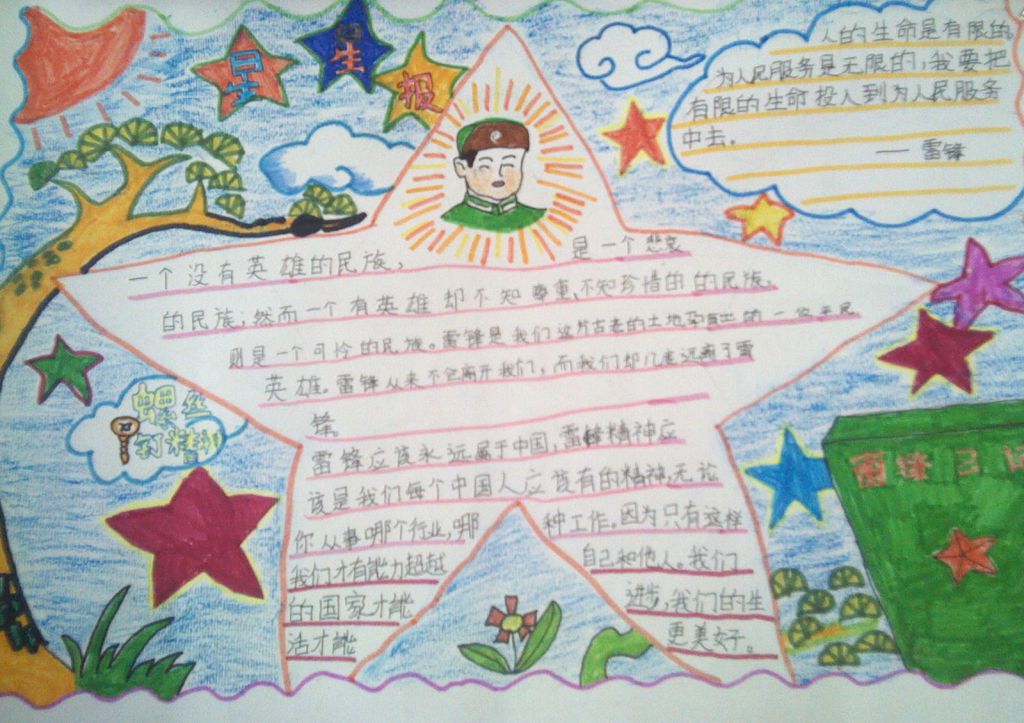 星生报
人的生命是有限的
为人民服务是无限的,我要把
有限的生命投入到为人民服务
中去。
——雷锋
一个没有英雄的民族, 是一个悲哀
的民族;然而一个有英雄却不知尊重、不知珍惜的的民族。
则是一个可怜的民族。雷锋是我们这片古老的土地孕育出的一位平民
英雄。雷锋从来不曾离开我们,而我们却几度远离了雷
锋。
雷锋应该永远属于中国,雷锋精神应
该是我们每个中国人应该有的精神,无论
你从事哪个行业,哪 种工作。因为只有这样
我们才有能力超越 自己和他人。我们
的国家才能 进步,我们的生
活才能 更美好。
螺丝
钉精神
雷锋日记